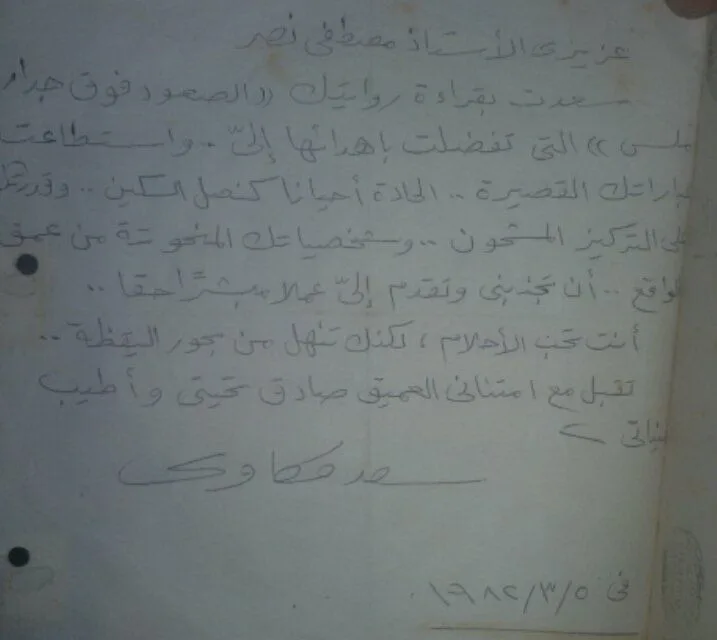 عزيزى الأستاذ مصطفى نصر
سعدت بقراءة روايتك «الصعود فوق جدار
ملس» التى تفضلت بإهدائها إلىّ . واستطاعت
باراتك القصيرة .. الحادة أحيانا كنصل السكين .. وقدرتك
لى التركيز المشحون .. وشخصياتك المنحوتة من عمق
واقع .. أن تجذبنى وتقدم إلىّ عملا مبشرًا حقا ..
أنت تحب الأحلام ، لكنك تنهل من بحور اليقظة ..
تقبل مع امتنانى العميق صادق تحيتى وأطيب
نياتى
سعد مكاوى
فى ١٩٨٢/٣/٥